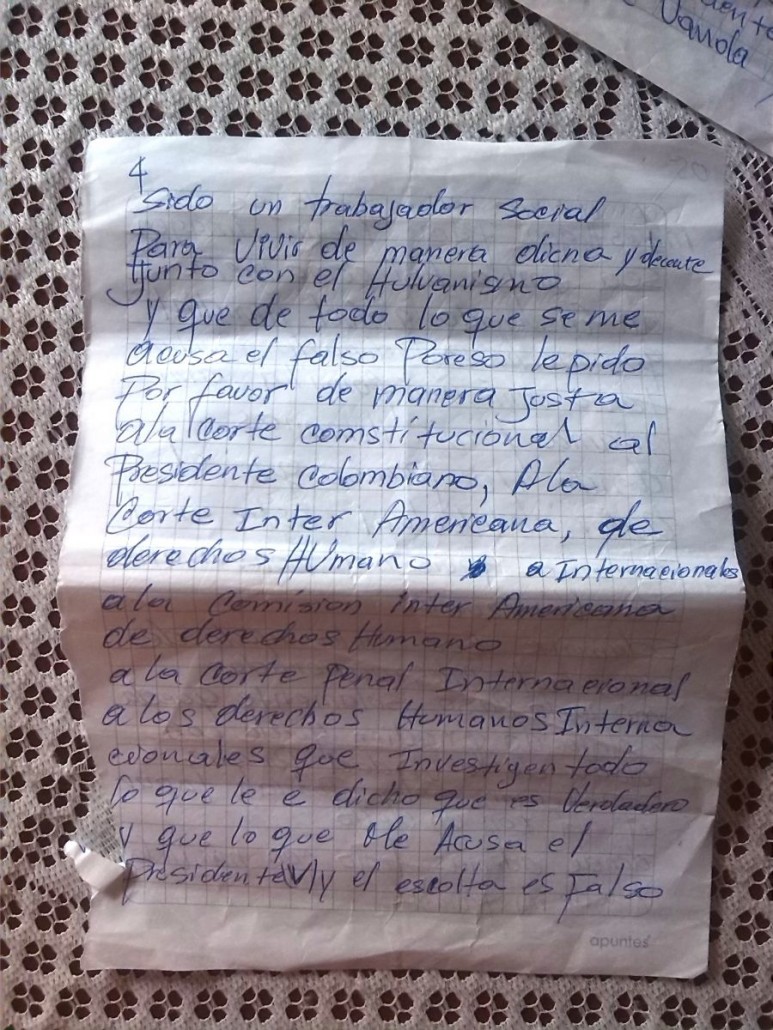 Vanola
4
Sido un trabajador Social
Para Vivir de manera dicna y decente
Junto con el Hulvanismo
y que de todo lo que se me
acusa el falso Poreso le pido
Por favor de manera Justa
ala Corte comstitucional al
Presidente Colombiano, A la
Corte Inter Americana, de
derechos HUmano a Internacionales
a la Comision inter Americana
de derechos Humano
a la Corte Penal Internacional
a los derechos Humanos Interna
cionales que Investigen todo
lo que le e dicho que es Verdadero
y que lo que Me Acusa el
Presidente(V)y el escolta es Falso
apuntes